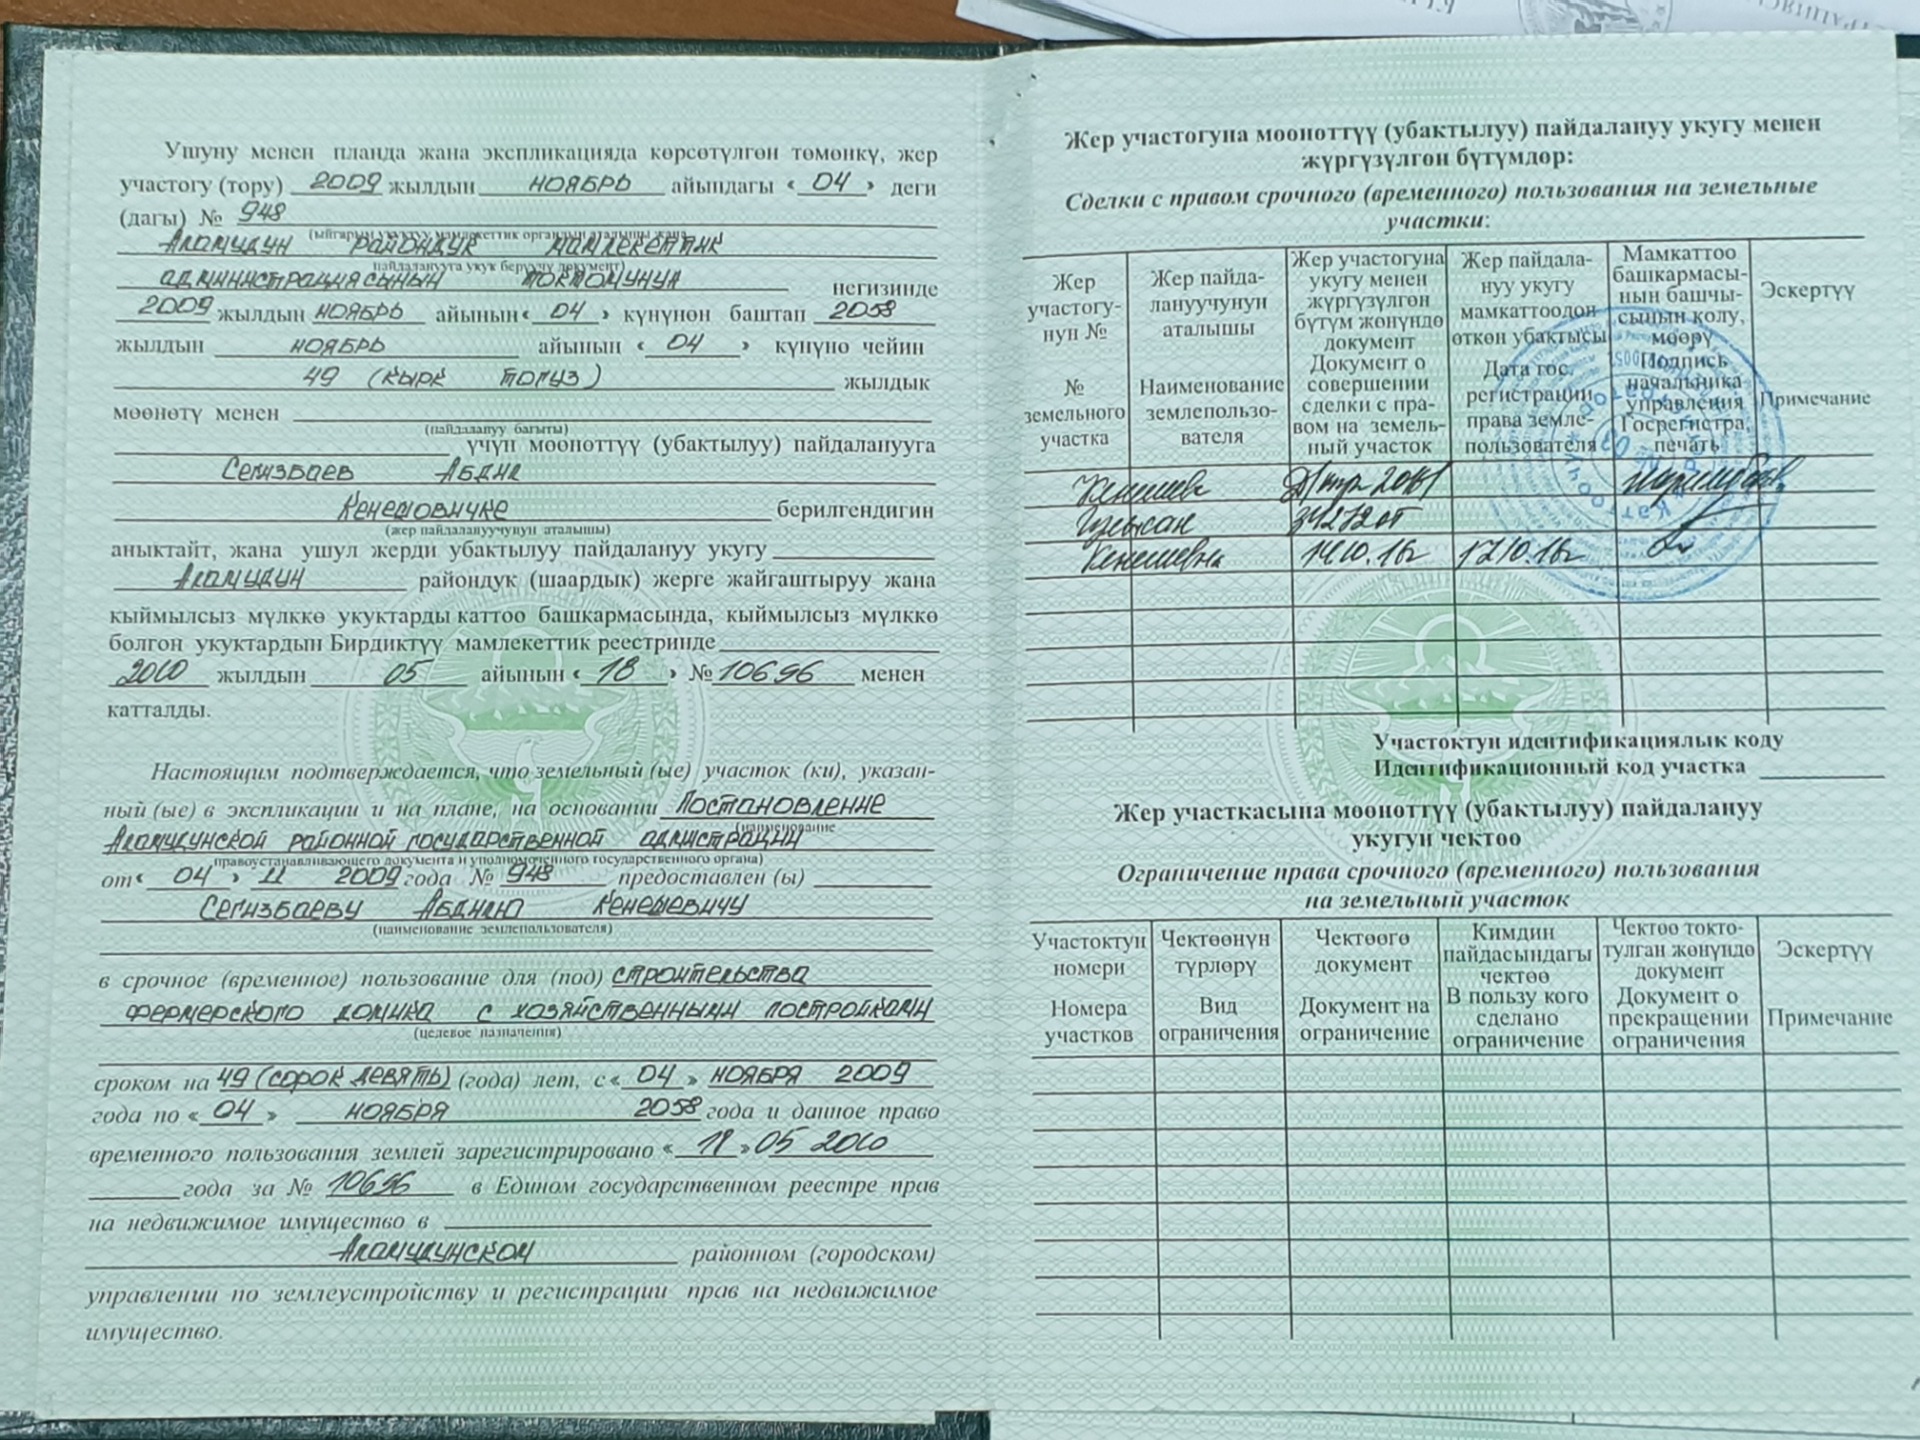 Ушуну менен планда жана экспликацияда көрсөтүлгөн төмөнкү, жер
участогу (тору) 2009 жылдын НОЯБРЬ айындагы «04» деги
(дагы) № 948
(ыйгарым укуктуу мамлекеттик органдын аталышы жана
Аламудун райондук мамлекеттик
пайдаланууга укук берүүчү документ)
администрациясынын токтомунун негизинде
2009 жылдын НОЯБРЬ айынын «04» күнүнөн баштап 2058
жылдын НОЯБРЬ айынын «04» күнүнө чейин
49 (кырк тогуз) жылдык
мөөнөтү менен
(пайдалануу багыты)
үчүн мөөнөттүү (убактылуу) пайдаланууга
Сегизбаев
Кенешовичке берилгендигин
(жер пайдалануучунун аталышы)
аныктайт, жана ушул жерди убактылуу пайдалануу укугу
Аламудун райондук (шаардык) жерге жайгаштыруу жана
кыймылсыз мүлккө укуктарды каттоо башкармасында, кыймылсыз мүлккө
болгон укуктардын Бирдиктүү мамлекеттик реестринде
2010 жылдын 05 айынын «18» № 10696 менен
катталды.
Настоящим подтверждается, что земельный (ые) участок (ки), указан-
ный (ые) в экспликации и на плане, на основании Постановление
(наименование
Аламудунской районной государственной адмистрации
правоустанавливающего документа и уполномоченного государственного органа)
от «04» 11 2009 года № 948 предоставлен (ы)
Сегизбаеву Кенешевичу
(наименование землепользователя)
в срочное (временное) пользование для (под) строительства
фермерского домика с хозяйственными постройками
(целевое назначения)
сроком на 49 (сорок девять) (года) лет, с «04» ноября 2009
года по «04» ноября 2058 года и данное право
временного пользования землей зарегистрировано «18» 05 2010
года за № 10696 в Едином государственном реестре прав
на недвижимое имущество в
Аламудунском районном (городском)
управлении по землеустройству и регистрации прав на недвижимое
имущество.
Жер участогуна мөөнөттүү (убактылуу) пайдалануу укугу менен
жүргүзүлгөн бүтүмдөр:
Сделки с правом срочного (временного) пользования на земельные
участки:
Жер участогу-нун № Жер пайда-лануучунун аталышы Жер участогуна укугу менен жүргүзүлгөн бүтүм жөнүндө документ Жер пайдала-нуу укугу мамкаттоодон өткөн убактысы Мамкаттоо башкармасы-нын башчы-сынын колу, мөөрү Эскертүү
№ земельного участка Наименование землепользо-вателя Документ о совершении сделки с пра-вом на земель-ный участок Дата гос. регистрации права земле-пользователя Подпись начальника управления Госрегистра, печать Примечание
Кенешева
Кенешевна 14.10.16г 17.10.16г
Участоктун идентификациялык коду
Идентификационный код участка
Жер участкасына мөөнөттүү (убактылуу) пайдалануу
укугун чектөө
Ограничение права срочного (временного) пользования
на земельный участок
Участоктун номери Чектөөнүн түрлөрү Чектөөгө документ Кимдин пайдасындагы чектөө Чектөө токто-тулган жөнүндө документ Эскертүү
Номера участков Вид ограничения Документ на ограничение В пользу кого сделано ограничение Документ о прекращении ограничения Примечание